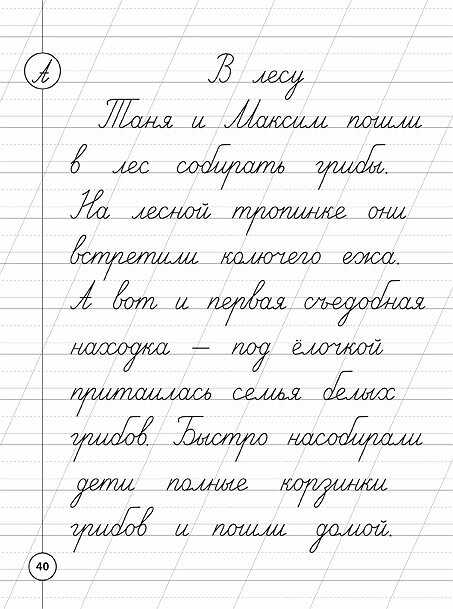 А
В лесу
Таня и Максим пошли
в лес собирать грибы.
На лесной тропинке они
встретили колючего ежа.
А вот и первая съедобная
находка – под ёлочкой
притаилась семья белых
грибов. Быстро насобирали
дети полные корзинки
грибов и пошли домой.
40